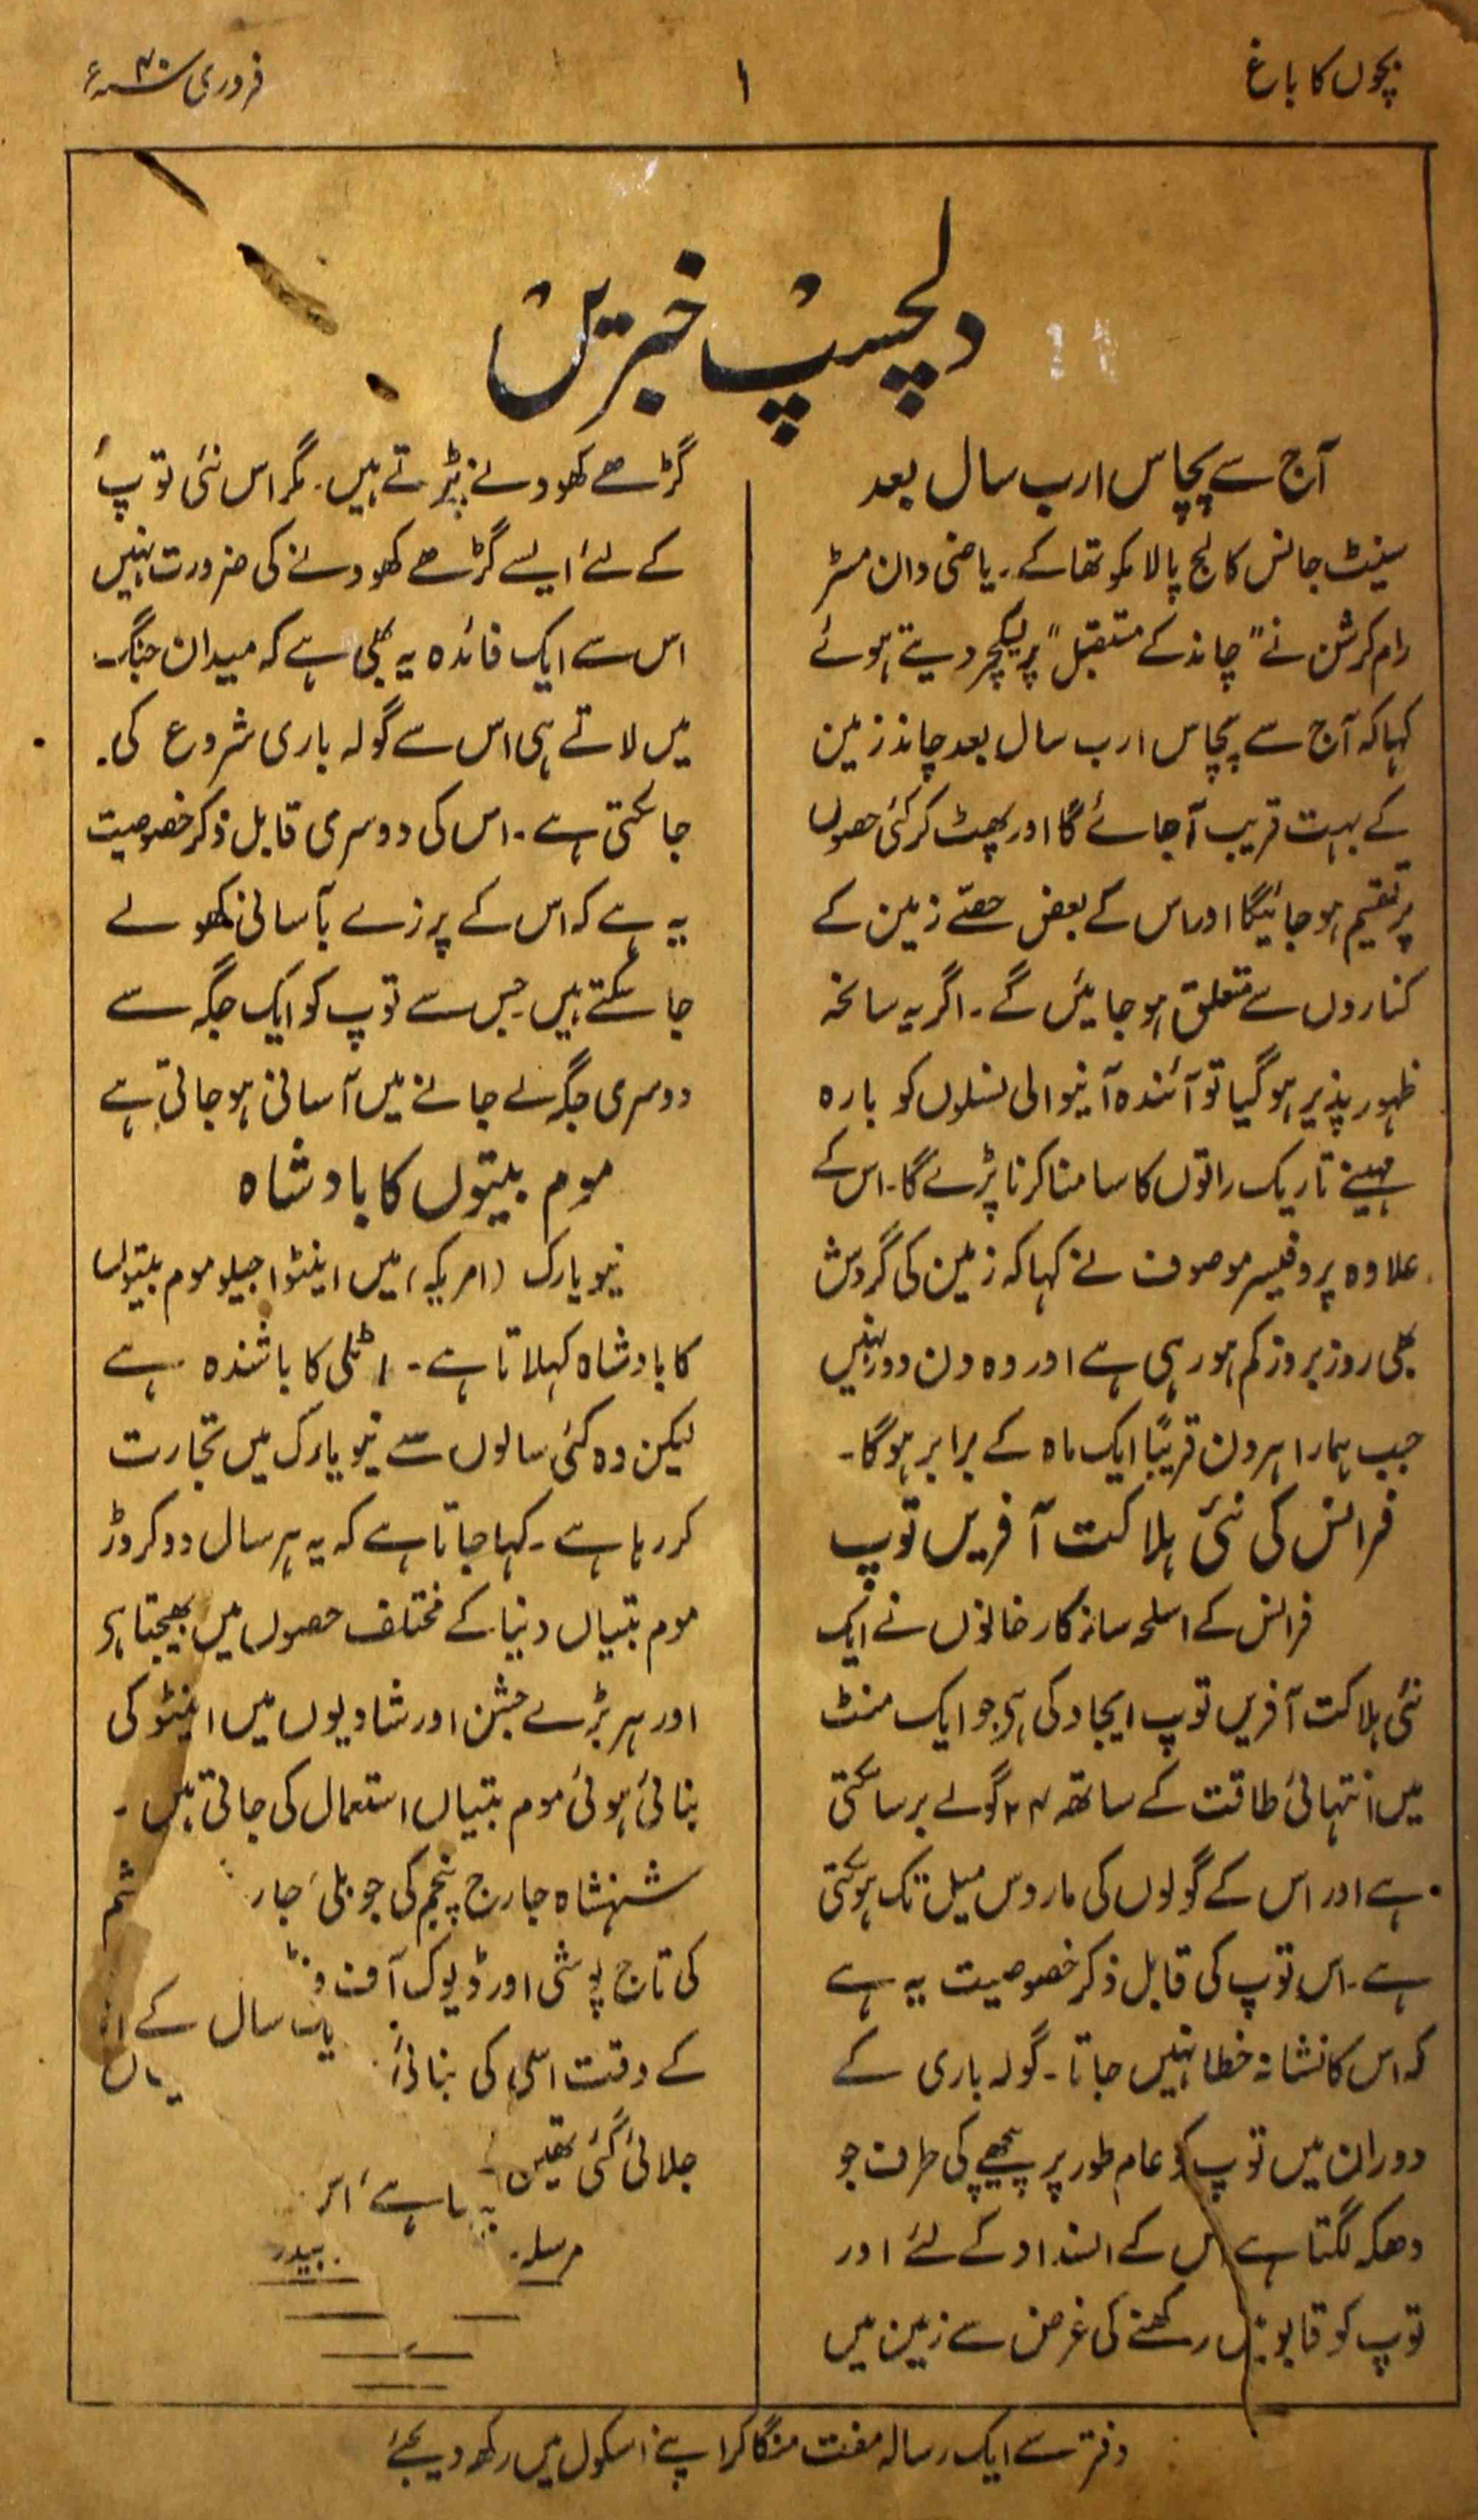 بچوں کا باغ
۱
فروری سنہ ۴۰ء
دلچسپ خبریں
آج سے پچاس ارب سال بعد
سینٹ جانس کالج پالا مکوتھا کے ریاضی دان مسٹر
رام کرشن نے "چاند کے مستقبل" پر لیکچر دیتے ہوئے
کہا کہ آج سے پچاس ارب سال بعد چاند زمین
کے بہت قریب آجائے گا اور پھٹ کر کئی حصوں
پر تقسیم ہو جائیگا اور اس کے بعض حصّے زمین کے
کناروں سے متعلق ہو جائیں گے۔ اگر یہ سانحہ
ظہور پذیر ہوگیا تو آئندہ آنیوالی نسلوں کو بارہ
مہینے تاریک راتوں کا سامنا کرنا پڑے گا۔ اس کے
علاوہ پروفیسر موصوف نے کہا کہ زمین کی گردش
بھی روز بروز کم ہو رہی ہے اور وہ دن دور نہیں
جب ہمارا ہر دن قریباً ایک ماہ کے برابر ہوگا۔
فرانس کی نئی ہلاکت آفریں توپ
فرانس کے اسلحہ ساز کارخانوں نے ایک
نئی ہلاکت آفریں توپ ایجاد کی ہی جو ایک منٹ
میں انتہائی طاقت کے ساتھ ۲۴ گولے برسا سکتی
ہے اور اس کے گولوں کی مار دس میل تک ہو سکتی
ہے۔ اس توپ کی قابل ذکر خصوصیت یہ ہے
کہ اس کا نشانہ خطا نہیں جاتا۔ گولہ باری کے
دوران میں توپ کو عام طور پر پیچھے کی طرف جو
دھکہ لگتا ہے اس کے انسداد کے لئے اور
توپ کو قابو میں رکھنے کی غرض سے زمین میں
گڑھے کھودنے پڑتے ہیں۔ مگر اس نئی توپ
کے لئے ایسے گڑھے کھودنے کی ضرورت نہیں
اس سے ایک فائدہ یہ بھی ہے کہ میدان جنگ
میں لاتے ہی اس سے گولہ باری شروع کی
جا سکتی ہے۔ اس کی دوسری قابل ذکر خصوصیت
یہ ہے کہ اس کے پرزے بآسانی کھولے
جا سکتے ہیں جس سے توپ کو ایک جگہ سے
دوسری جگہ لے جانے میں آسانی ہو جاتی ہے
موم بتیوں کا بادشاہ
نیویارک (امریکہ) میں اینٹو اجیلو موم بتیوں
کا بادشاہ کہلاتا ہے۔ اٹلی کا باشندہ ہے
لیکن وہ کئی سالوں سے نیویارک میں تجارت
کر رہا ہے۔ کہا جاتا ہے کہ یہ ہر سال دو کروڑ
موم بتیاں دنیا کے مختلف حصوں میں بھیجتا ہی
اور ہر بڑے جشن اور شادیوں میں اینٹو کی
بنائی ہوئی موم بتیاں استعمال کی جاتی ہیں۔
شہنشاہ جارج پنجم کی جوبلی، جار
کی تاج پوشی اور ڈیوک آف
سال کے
کے وقت اسی کی بنائی
جلائی گئی تھیں
مرسلہ
بیدر
دفتر سے ایک رسالہ مفت منگا کر اپنے اسکول میں رکھ دیجئے